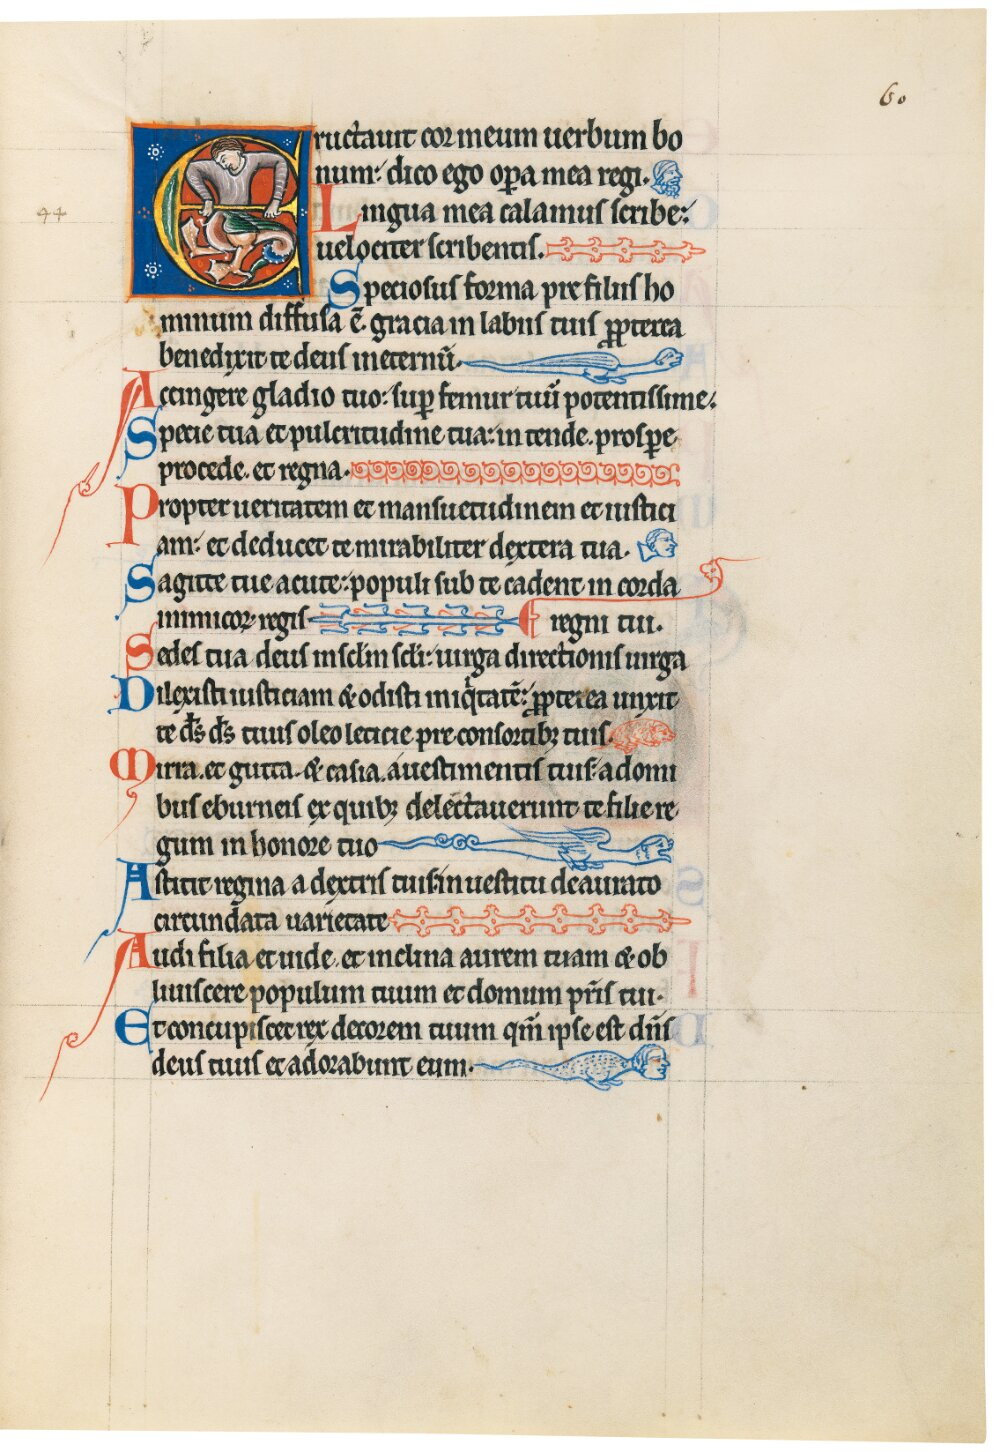 60
Eructauit cor meum uerbum bo
num: dico ego op̲a mea regi.
44
Lingua mea calamus scribe:
uelociter scribentis.
Speciosus forma pre filiis ho
minum diffusa ē. gracia in labiis tuis ꝓpterea
benedixit te deus ineternū.
Accingere gladio tuo: sup̲ femur tuū potentissime:
Specie tua et pulcritudine tua: in tende. prosp̲e
procede. et regna.
Propter ueritatem et mansuetudinem et iustici
am: et deducet te mirabiliter dextera tua.
Sagitte tue acute: populi sub te cadent in corda
inimicoꝝ regis regni tui.
Sedes tua deus insclm scli: uirga directionis uirga
Dilexisti iusticiam & odisti iniq̄tatē: ꝓpterea unxit
te ds̄ ds̄ tuus oleo leticie pre consortibꝫ tuis.
Mirra. et gutta. & casia. auestimentis tuis: a domi
bus eburneis ex quibꝫ delectauerunt te filie re
gum in honore tuo
Astitit regina a dextris tuis in uestitu deaurato
circundata uarietate
Audi filia et uide. et inclina aurem tuam & ob
liuiscere populum tuum et domum pr̄is tui.
Et concupiscet rex decorem tuum qm̄ ipse est dn̄s
deus tuus et adorabunt eum.